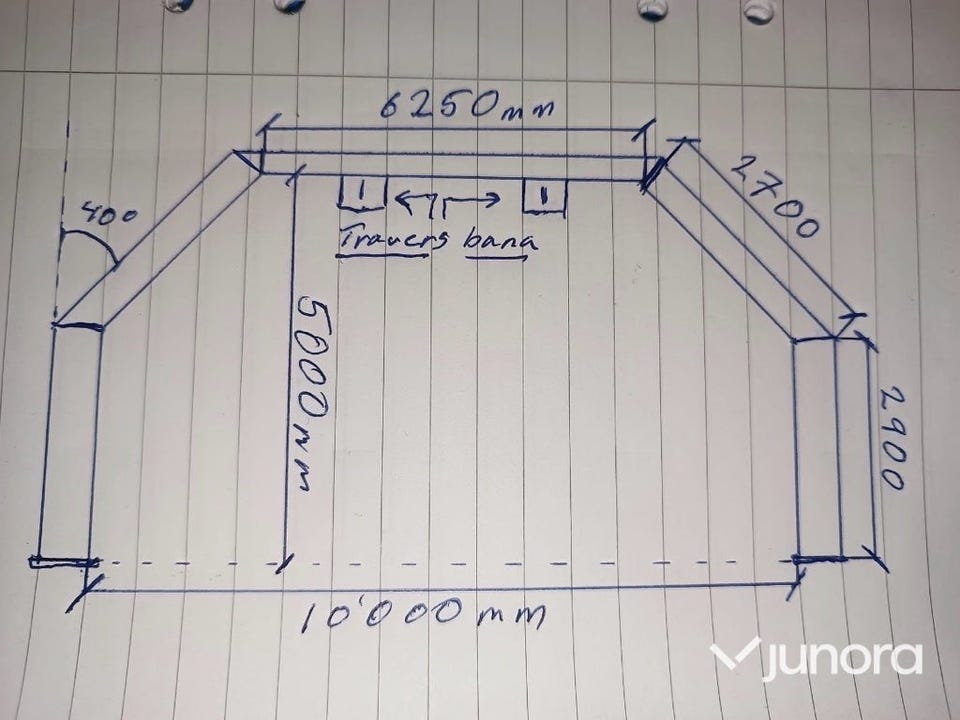 6250mm
2700
400
1
1
Travers bana
5000mm
2900
10'000 mm
junora